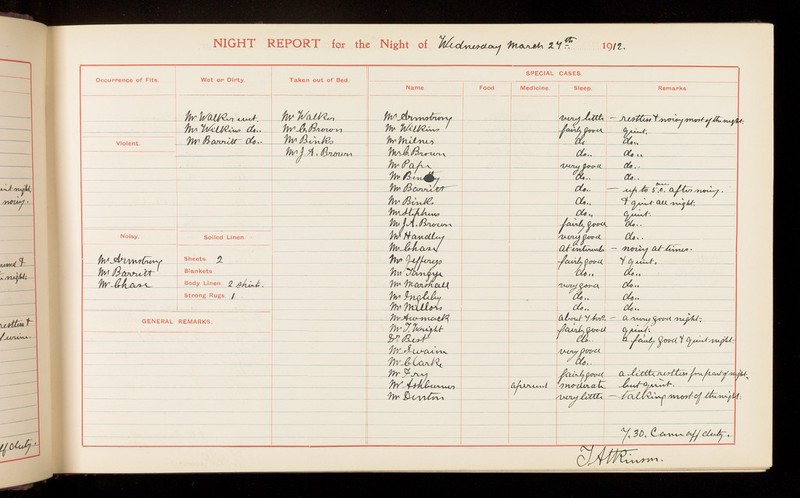 NIGHT REPORT for the Night of Wednesday March 27th 1912.
SPECIAL CASES.
Occurrence of Fits. Wet or Dirty. Taken out of Bed. Name. Food. Medicine. Sleep. Remarks.
Mr Walker wet. Mr Walker Mr Armstrong very little — restless & noisy most of the night.
Mr Wilkins do.. Mr C. Brown Mr Wilkins fairly good quiet.
Violent. Mr Barritt do.. Mr Binks Mr Milner do do..
Mr J. A. Brown Mr C. Brown do.. do..
Mr very good do..
Mr do.. do..
Mr Barritt do.. — up to 5.0. am after noisy.
Mr Binks do.. & quiet all night.
Mr Stephens do.. quiet.
Mr J. A. Brown fairly good do..
Noisy Soiled Linen. Mr Handley very good do..
Mr Chase at intervals — noisy at times.
Mr Armstrong Sheets. 2 Mr Jefferys fairly good & quiet.
Mr Barritt Blankets Mr do.. do..
Mr Chase Body Linen. 2 shirts. Mr Marshall very good do..
Strong Rugs. 1. Mr Ingleby do.. do..
Mr Mellors do.. do..
GENERAL REMARKS. Mr about 4 hrs. — a very good night.
Mr T. Wright fairly good quiet.
Dr Best do.. a fairly good & quiet night.
Mr Swaim very good
Mr C. Clarke do..
Mr Fry fairly good a little restless for part of night,
Mr Ashburner aperient moderate but quiet.
Mr Denton very little — talking most of the night.
7.30. Came off duty.
T Atkinson.